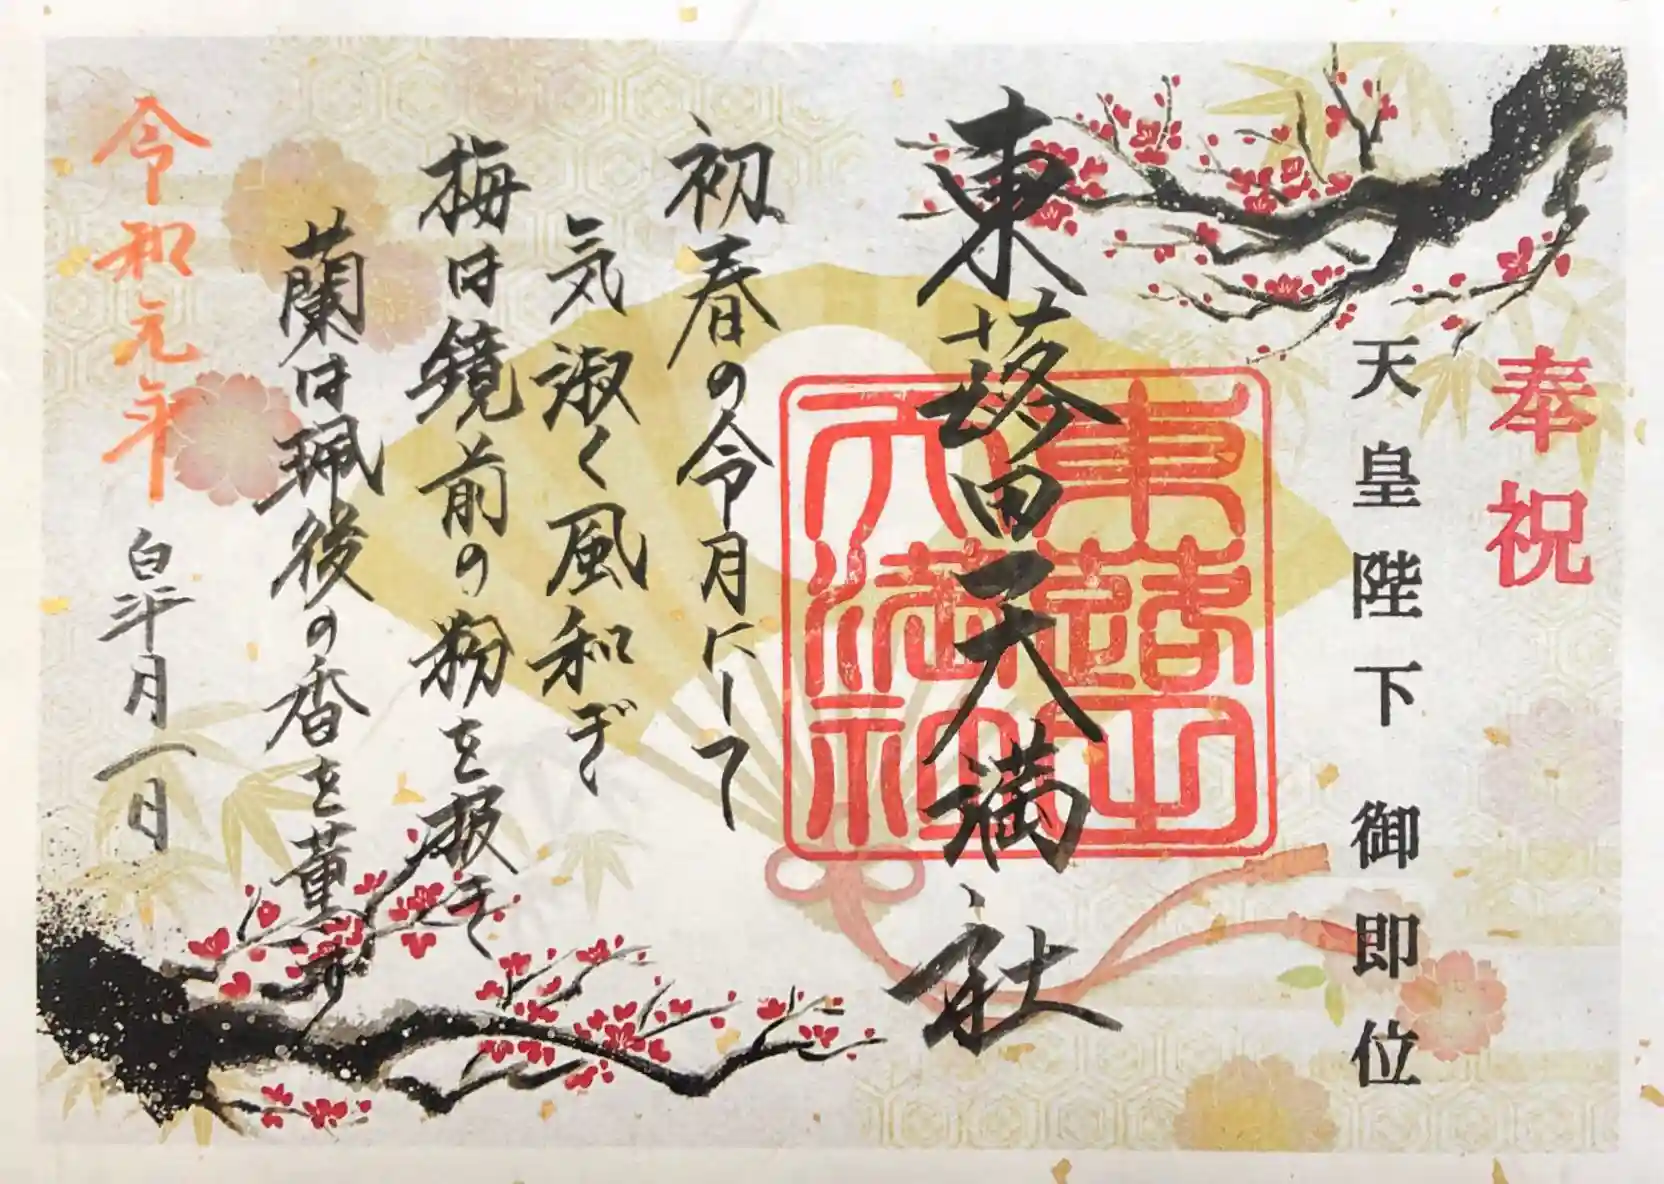 奉祝
天皇陛下 御即位
東蕗田天満社
東蕗田
天満社
初春の令月にして
気淑く風和ぎ
梅は鏡前の粉を披き
蘭は珮後の香を薫す
令和元年 皐月一日